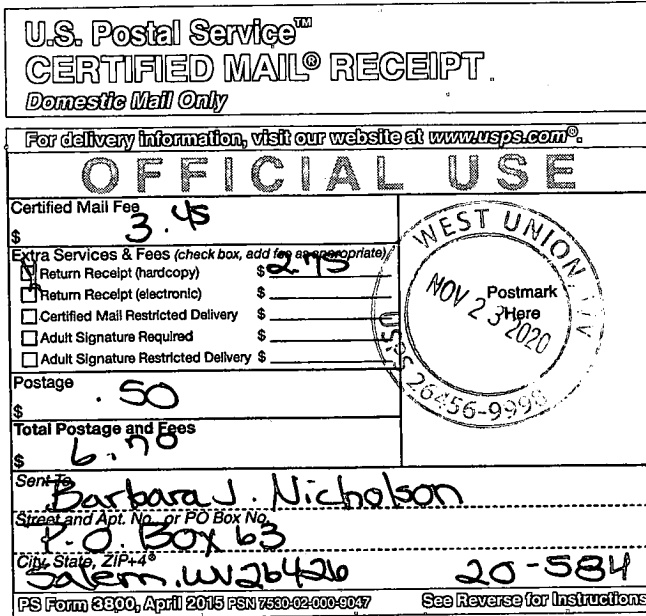 U.S. Postal Service™
CERTIFIED MAIL® RECEIPT
Domestic Mail Only
For delivery information, visit our website at www.usps.com®.
OFFICIAL USE
Certified Mail Fee
$ 3.45
Extra Services & Fees (check box, add fee as appropriate)
Return Receipt (hardcopy) $ 2.75
Return Receipt (electronic) $
Certified Mail Restricted Delivery $
Adult Signature Required $
Adult Signature Restricted Delivery $
WEST UNION, WV
NOV 23 2020
Postmark
Here
USPS 26456-9998
Postage
$ .50
Total Postage and Fees
$ 6.70
Sent To
Barbara J. Nicholson
Street and Apt. No., or PO Box No.
P.O. Box 63
City, State, ZIP+4®
Salem, WV 26426 20-584
PS Form 3800, April 2015 PSN 7530-02-000-9047 See Reverse for Instructions